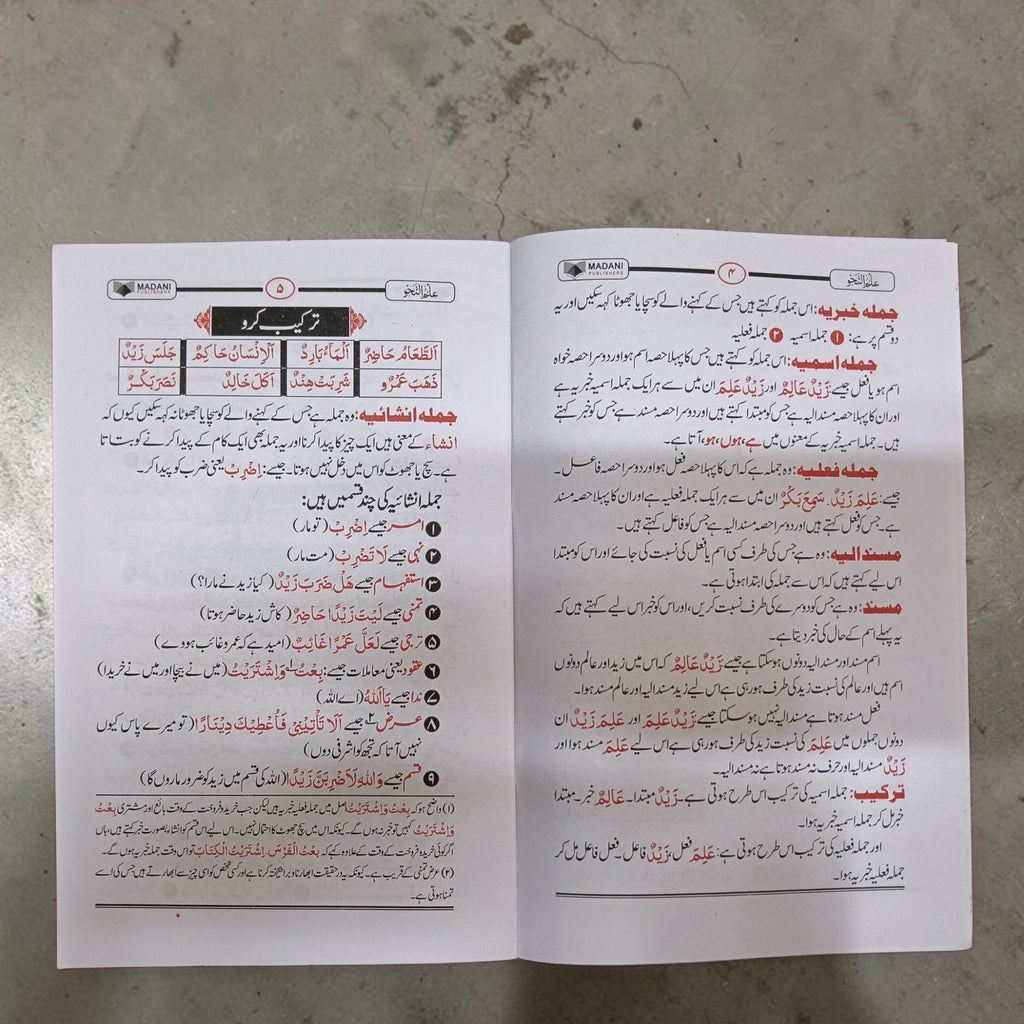 علم النحو
۴
MADANI
PUBLISHERS
جملہ خبریہ: اس جملہ کو کہتے ہیں جس کے کہنے والے کو سچا یا جھوٹا کہہ سکیں اور یہ
دو قسم پر ہے: ❶ جملہ اسمیہ ❷ جملہ فعلیہ
جملہ اسمیہ: اس جملہ کو کہتے ہیں جس کا پہلا حصہ اسم ہو اور دوسرا حصہ خواہ
اسم ہو یا فعل جیسے: زَیْدٌ عَالِمٌ اور زَیْدٌ عَلِمَ ان میں سے ہر ایک جملہ اسمیہ خبریہ ہے
اور ان کا پہلا حصہ مسند الیہ ہے جس کو مبتدا کہتے ہیں اور دوسرا حصہ مسند ہے جس کو خبر کہتے
ہیں۔ جملہ اسمیہ خبریہ کے معنوں میں ہے، ہوں، ہو، آتا ہے۔
جملہ فعلیہ: وہ جملہ ہے کہ اس کا پہلا حصہ فعل ہو اور دوسرا حصہ فاعل۔
جیسے: عَلِمَ زَیْدٌ۔ سَمِعَ بَکْرٌ ان میں سے ہر ایک جملہ فعلیہ ہے اور ان کا پہلا حصہ مسند
ہے۔ جس کو فعل کہتے ہیں اور دوسرا حصہ مسند الیہ ہے جس کو فاعل کہتے ہیں۔
مسند الیہ: وہ ہے جس کی طرف کسی اسم یا فعل کی نسبت کی جائے اور اس کو مبتدا
اس لیے کہتے ہیں کہ اس سے جملہ کی ابتدا ہوتی ہے۔
مسند: وہ ہے جس کو دوسرے کی طرف نسبت کریں، اور اس کو خبر اس لیے کہتے ہیں کہ
یہ پہلے اسم کے حال کی خبر دیتا ہے۔
اسم مسند اور مسند الیہ دونوں ہو سکتا ہے جیسے: زَیْدٌ عَالِمٌ کہ اس میں زید اور عالم دونوں
اسم ہیں اور عالم کی نسبت زید کی طرف ہو رہی ہے اس لیے زید مسند الیہ اور عالم مسند ہوا۔
فعل مسند ہوتا ہے مسند الیہ نہیں ہو سکتا جیسے زَیْدٌ عَلِمَ اور عَلِمَ زَیْدٌ ان
دونوں جملوں میں عَلِمَ کی نسبت زید کی طرف ہو رہی ہے اس لیے عَلِمَ مسند ہوا اور
زَیْدٌ مسند الیہ اور حرف نہ مسند ہوتا ہے نہ مسند الیہ۔
ترکیب: جملہ اسمیہ کی ترکیب اس طرح ہوتی ہے۔ زَیْدٌ مبتدا۔ عَالِمٌ خبر۔ مبتدا
خبر مل کر جملہ اسمیہ خبریہ ہوا۔
اور جملہ فعلیہ کی ترکیب اس طرح ہوتی ہے: عَلِمَ فعل، زَیْدٌ فاعل۔ فعل فاعل مل کر
جملہ فعلیہ خبریہ ہوا۔
علم النحو
۵
MADANI
PUBLISHERS
ترکیب کرو
اَلطَّعَامُ حَاضِرٌ اَلْمَاءُ بَارِدٌ اَلْاِنْسَانُ حَاکِمٌ جَلَسَ زَیْدٌ
ذَھَبَ عَمْرٌو شَرِبَتْ ھِنْدٌ اَکَلَ خَالِدٌ نَصَرَ بَکْرٌ
جملہ انشائیہ: وہ جملہ ہے جس کے کہنے والے کو سچا یا جھوٹا نہ کہہ سکیں کیوں کہ
انشاء کے معنی ہیں ایک چیز کا پیدا کرنا اور یہ جملہ بھی ایک کام کے پیدا کرنے کو بتاتا
ہے۔ سچ یا جھوٹ کو اس میں دخل نہیں ہوتا۔ جیسے: اِضْرِبْ یعنی ضرب کو پیدا کر۔
جملہ انشائیہ کی چند قسمیں ہیں:
❶ امر جیسے اِضْرِبْ (تو مار)
❷ نہی جیسے لَا تَضْرِبْ (مت مار)
❸ استفہام جیسے ھَلْ ضَرَبَ زَیْدٌ (کیا زید نے مارا؟)
❹ تمنی جیسے لَیْتَ زَیْدًا حَاضِرٌ (کاش زید حاضر ہوتا)
❺ ترجی جیسے لَعَلَّ عَمْرًا غَائِبٌ (امید ہے کہ عمرو غائب ہووے)
❻ عقود یعنی معاملات جیسے: بِعْتُ وَاشْتَرَیْتُ (۱) (میں نے بیچا اور میں نے خریدا)
❼ ندا جیسے یَا اَللّٰہُ (اے اللہ)
❽ عرض (۲) جیسے اَلَا تَأْتِیْنِیْ فَاُعْطِیَكَ دِیْنَارًا (تو میرے پاس کیوں
نہیں آتا کہ تجھ کو اشرفی دوں)
❾ قسم جیسے وَاللہِ لَاَضْرِبَنَّ زَیْدًا (اللہ کی قسم میں زید کو ضرور ماروں گا)
(۱) واضح ہو کہ بِعْتُ وَاشْتَرَیْتُ اصل میں جملہ فعلیہ خبریہ ہیں لیکن جب خرید و فروخت کے وقت بائع اور مشتری بِعْتُ
وَاشْتَرَیْتُ کہیں تو خبر نہ ہوں گے۔ کیونکہ اس میں سچ جھوٹ کا احتمال نہیں۔ اس لیے اس قسم کو انشاء بصورت خبر کہتے ہیں، ہاں
اگر کوئی خرید و فروخت کے وقت کے علاوہ کہے کہ بِعْتُ الْفَرَسَ۔ اِشْتَرَیْتُ الْکِتَابَ تو اس وقت جملہ خبریہ ہوں گے۔
(۲) عرض تمنی کے قریب ہے۔ کیونکہ یہ در حقیقت ابھارنا و برانگیختہ کرنا ہے اور کسی شخص کو اسی چیز سے ابھارتے ہیں جس کی اسے
تمنا ہوتی ہے۔